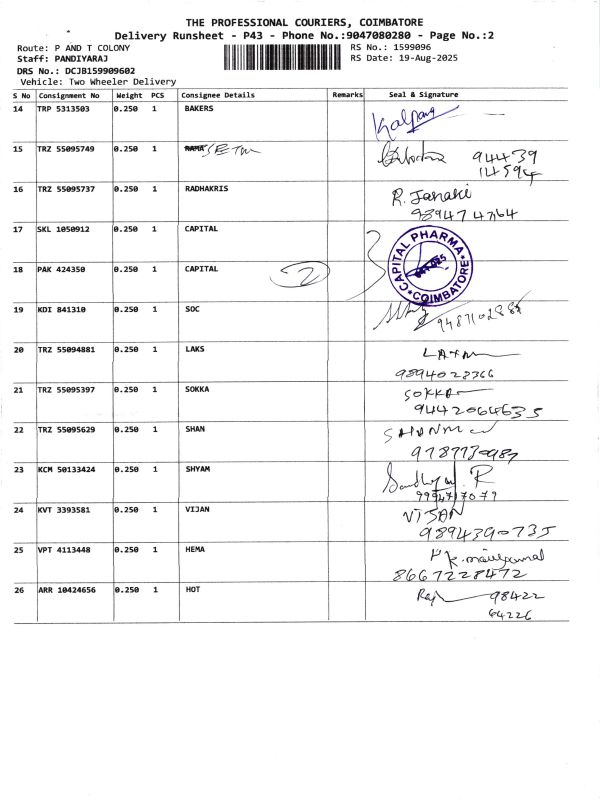 THE PROFESSIONAL COURIERS, COIMBATORE
Delivery Runsheet - P43 - Phone No.:9047080280 - Page No.:2
Route: P AND T COLONY RS No.: 1599096
Staff: PANDIYARAJ RS Date: 19-Aug-2025
DRS No.: DCJB159909602
Vehicle: Two Wheeler Delivery
S No Consignment No Weight PCS Consignee Details Remarks Seal & Signature
14 TRP 5313503 0.250 1 BAKERS Kalpana
15 TRZ 55095749 0.250 1 94439
14594
16 TRZ 55095737 0.250 1 RADHAKRIS R. Janaki
9894747764
17 SKL 1050912 0.250 1 CAPITAL
CAPITAL PHARMA
COIMBATORE
18 PAK 424350 0.250 1 CAPITAL 2
19 KDI 841310 0.250 1 SOC
20 TRZ 55094881 0.250 1 LAKS
9894023366
21 TRZ 55095397 0.250 1 SOKKA SOKKA
9442064635
22 TRZ 55095629 0.250 1 SHAN
23 KCM 50133424 0.250 1 SHYAM
9994717079
24 KVT 3393581 0.250 1 VIJAN VIJAN
9894390735
25 VPT 4113448 0.250 1 HEMA
8667228472
26 ARR 10424656 0.250 1 HOT 98422
64226